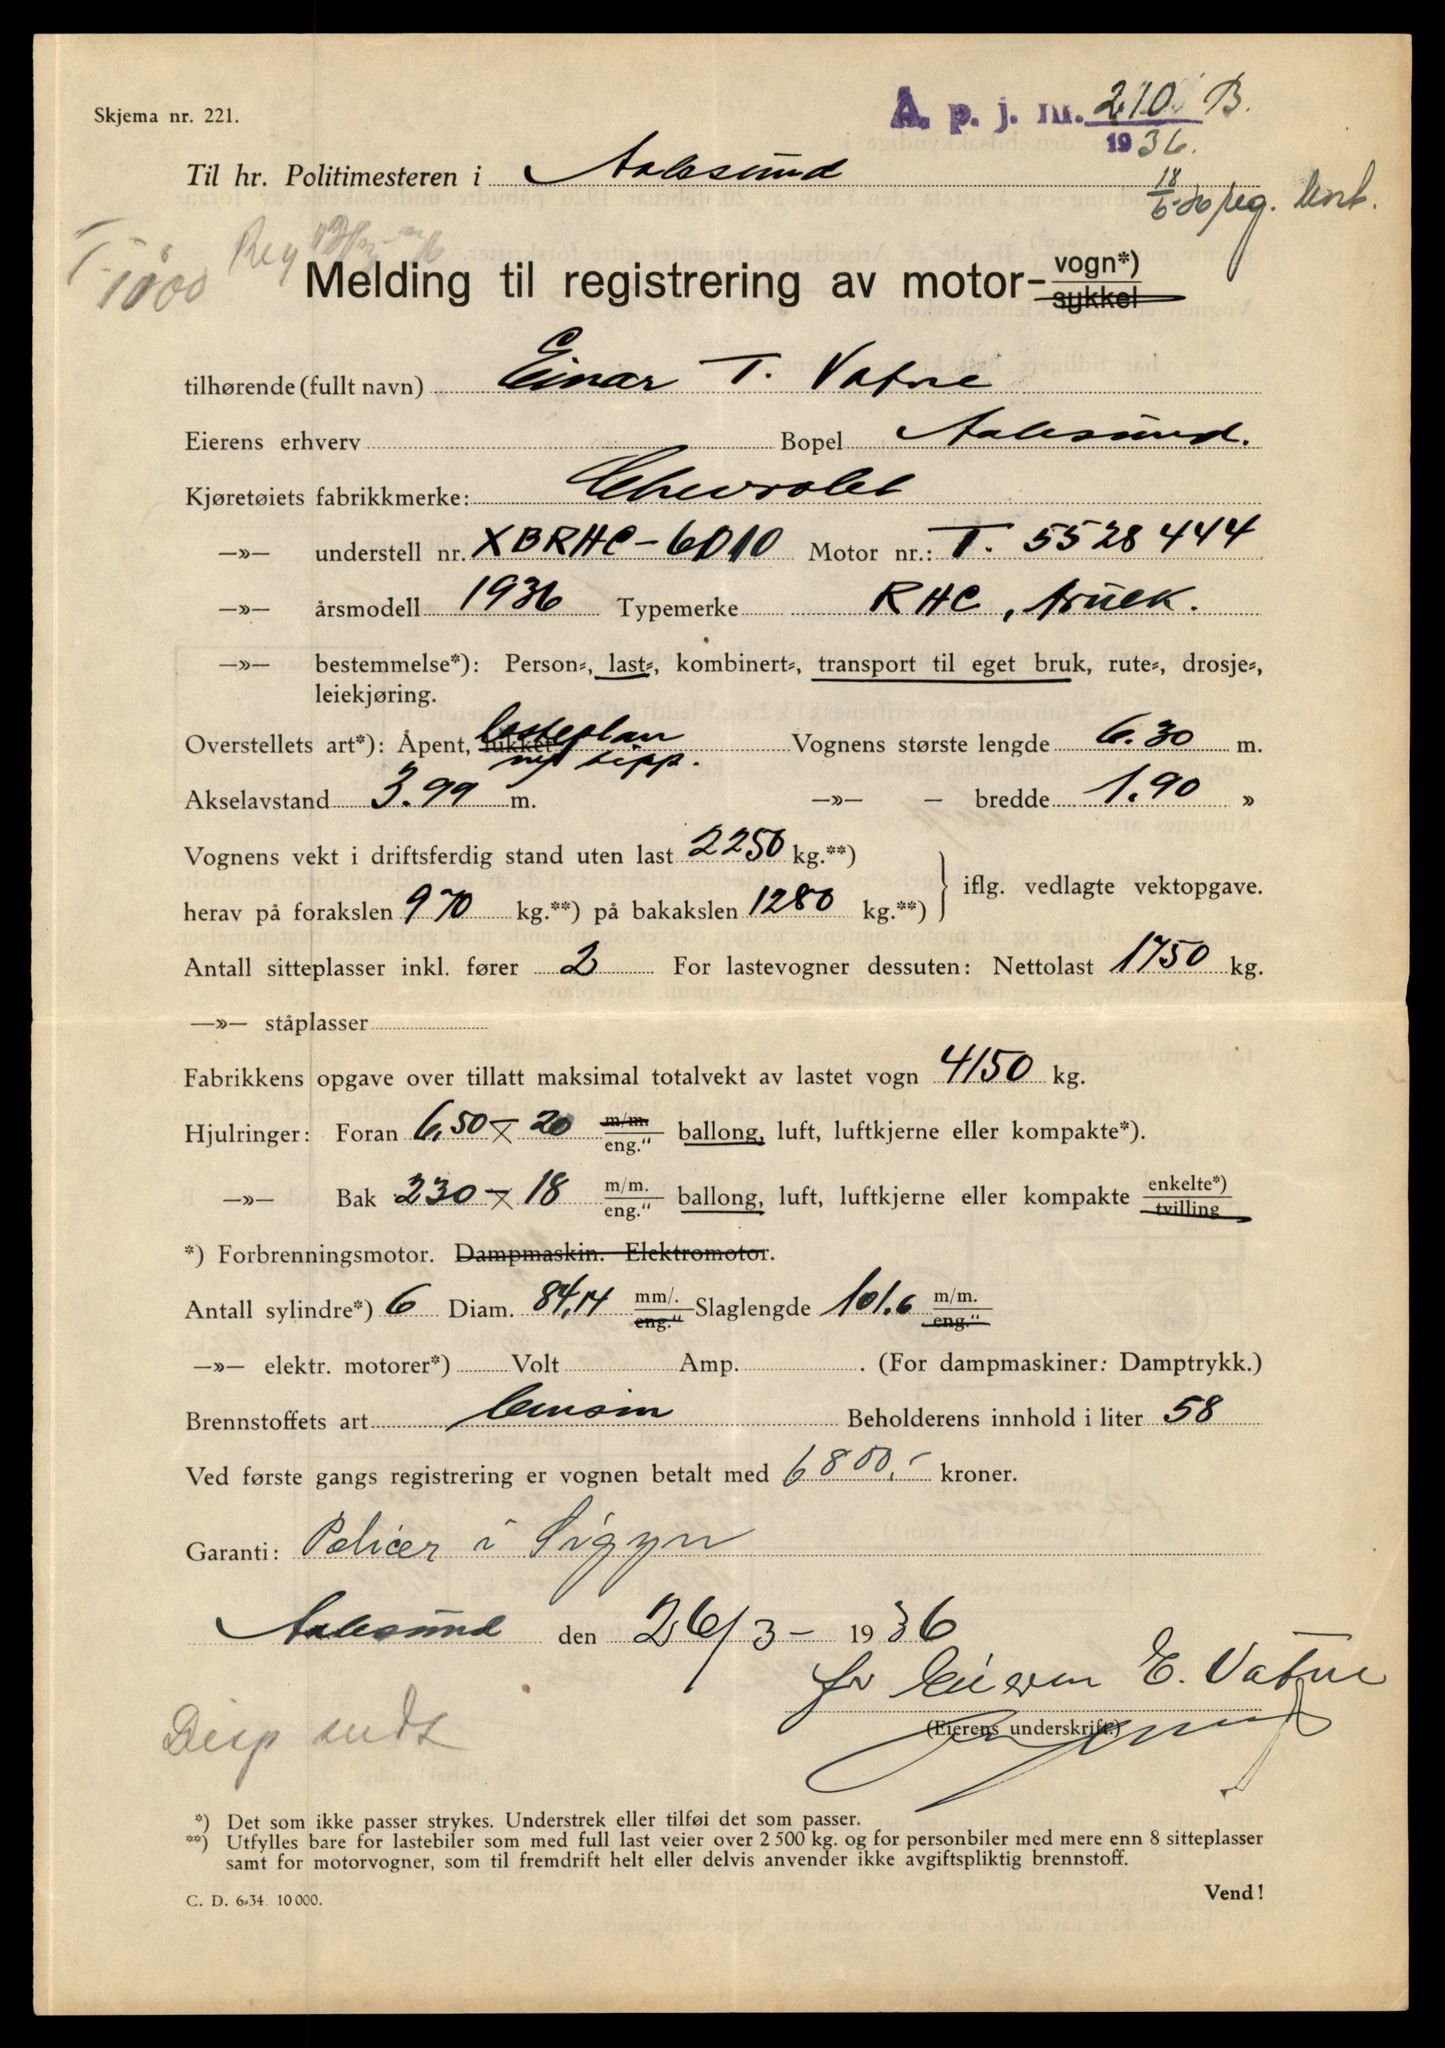 Skjema nr. 221.
A. p. j. nr. 210 B.
1936.
Til hr. Politimesteren i Aalesund
18/6-36 reg.
T-1000 Reg
Melding til registrering av motor-vogn*)
sykkel
tilhørende (fullt navn) Einar T. Vatne
Eierens erhverv Bopel Aalesund.
Kjøretøiets fabrikkmerke: Chevrolet
—»— understell nr. XBRHC-6010 Motor nr.: T. 5528444
—»— årsmodell 1936 Typemerke RHC, truck.
—»— bestemmelse*): Person-, last-, kombinert-, transport til eget bruk, rute-, drosje-,
leiekjøring.
Overstellets art*): Åpent, lukket lasteplan Vognens største lengde 6.30 m.
m/ tipp.
Akselavstand 3.99 m. —»— – bredde 1.90 »
Vognens vekt i driftsferdig stand uten last 2250 kg.**)
herav på forakslen 970 kg.**) på bakakslen 1280 kg.**) } iflg. vedlagte vektopgave.
Antall sitteplasser inkl. fører 2 For lastevogner dessuten: Nettolast 1750 kg.
—»— ståplasser
Fabrikkens opgave over tillatt maksimal totalvekt av lastet vogn 4150 kg.
Hjulringer: Foran 6,50 x 20 m/m. eng." ballong, luft, luftkjerne eller kompakte*).
—»— Bak 230 x 18 m/m. eng." ballong, luft, luftkjerne eller kompakte enkelte*) tvilling
*) Forbrenningsmotor. Dampmaskin. Elektromotor.
Antall sylindre*) 6 Diam. 84,14 mm/. eng." Slaglengde 101.6 m/m. eng."
—»— elektr. motorer*) Volt Amp. . (For dampmaskiner: Damptrykk.)
Brennstoffets art Bensin Beholderens innhold i liter 58
Ved første gangs registrering er vognen betalt med 6800,- kroner.
Garanti: Policer i Sigyn
Aalesund den 26/3- 1936
for Eieren E. Vatne
(Eierens underskrift.)
Disp sendt
*) Det som ikke passer strykes. Understrek eller tilføi det som passer.
**) Utfylles bare for lastebiler som med full last veier over 2 500 kg. og for personbiler med mere enn 8 sitteplasser
samt for motorvogner, som til fremdrift helt eller delvis anvender ikke avgiftspliktig brennstoff.
C. D. 6-34. 10 000.
Vend!